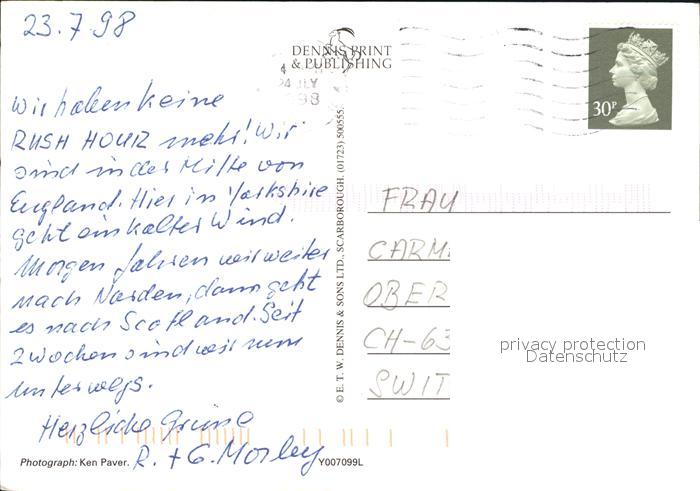 23.7.98
Wir haben keine
RUSH HOUR mehr! Wir
sind in der Mitte von
England. Hier in Yorkshire
geht ein kalter Wind.
Morgen fahren wir weiter
nach Norden, dann geht
es nach Scotland. Seit
2 Wochen sind wir nun
unterwegs.
Herzliche Grüsse
R. + G. Morley
Photograph: Ken Paver.
Y007099L
DENNIS PRINT
& PUBLISHING
4
24 JLY
98
© E. T. W. DENNIS & SONS LTD., SCARBOROUGH. (01723) 500555.
30P
FRAU
CARM
OBER
CH-63
SWIT
privacy protection
Datenschutz